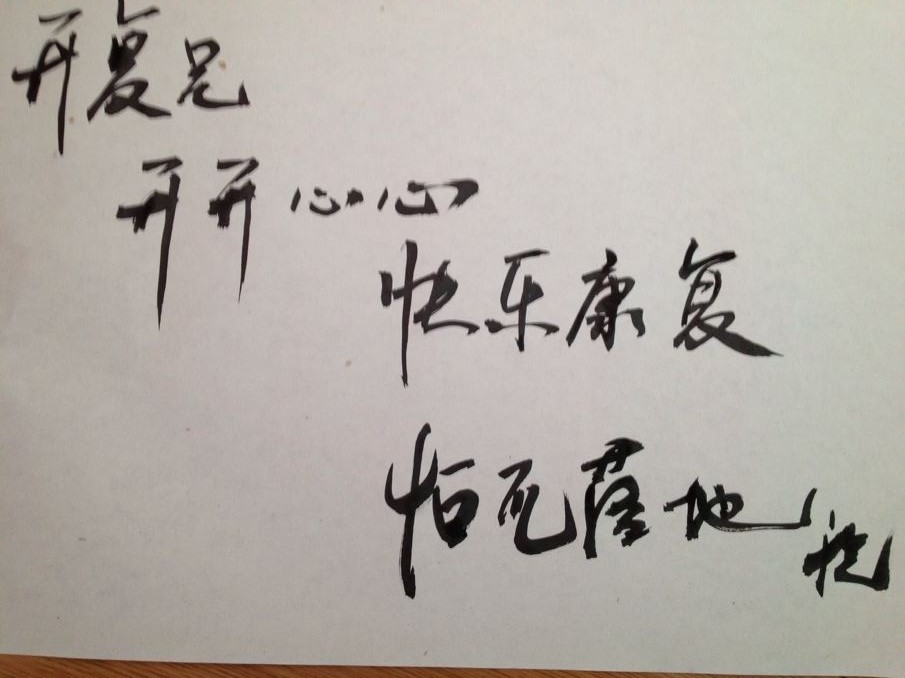 开复兄
开开心心
快乐康复
瓦落地